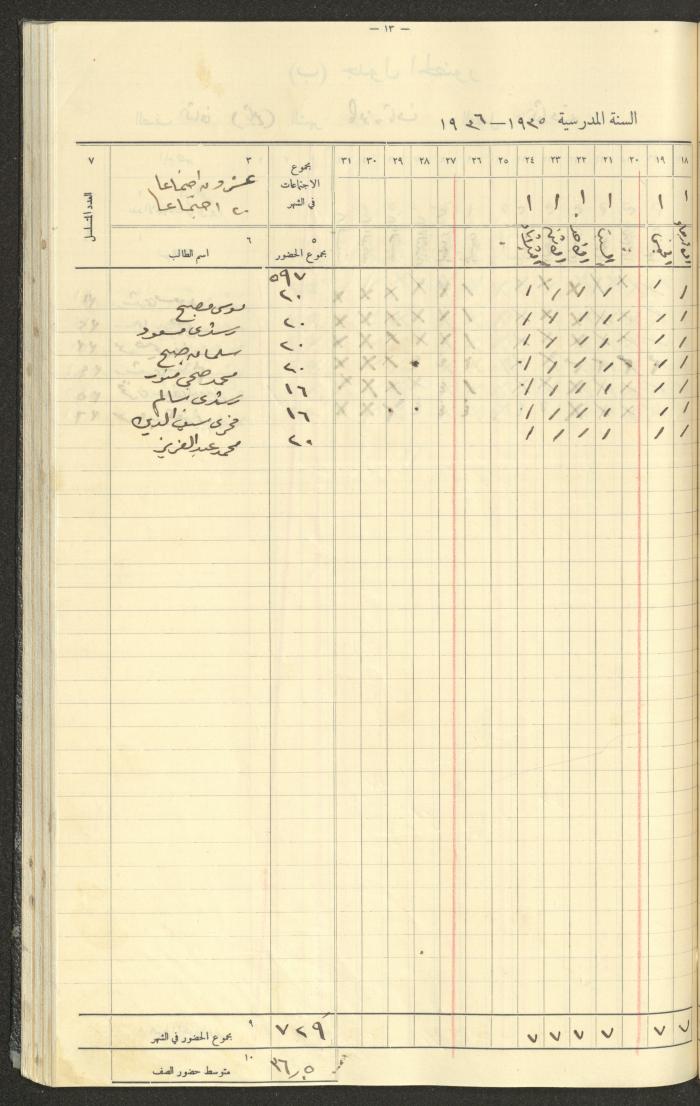 — ١٣ —
السنة المدرسية ١٩٣٥ — ١٩٣٦
١٨ ١٩ ٢٠ ٢١ ٢٢ ٢٣ ٢٤ ٢٥ ٢٦ ٢٧ ٢٨ ٢٩ ٣٠ ٣١ مجموع الاجتماعات في الشهر ٣ عشرون اجتماعا ٧
١ ١ ١ ١ ١ ١ ٢٠ اجتماعا العدد المتسلسل
الاربعاء الخميس السبت الاحد الاثنين الثلاثاء ٥ مجموع الحضور ٦ اسم الطالب
٥٩٧
/ / / / / / ٢٠ موسى مصبح
/ / / / / / ٢٠ رشدي مسعود
/ / / / / / ٢٠ سلمان صبح
/ / / / / / ٢٠ محمد صبحي منور
/ / / / / / ١٦ رشدي سالم
/ / / / / / ١٦ فخري سيف الدين
/ / / / / / ٢٠ محمد عبد العزيز
٧ ٧ ٧ ٧ ٧ ٧ ٧٢٩ ٩ مجموع الحضور في الشهر
٣٦٫٠٥ ١٠ متوسط حضور الصف